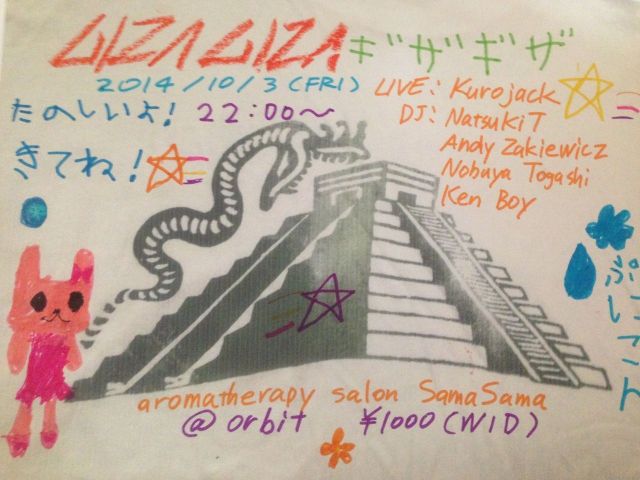 GIZA GIZA ギザギザ
2014/10/3 (FRI)
たのしいよ! 22:00〜
きてね!
LIVE: Kurojack
DJ: Natsuki T
Andy Zakiewicz
Nobuya Togashi
Ken Boy
ぷにこん
aromatherapy salon SamaSama
@ orbit ¥1000 (W1D)